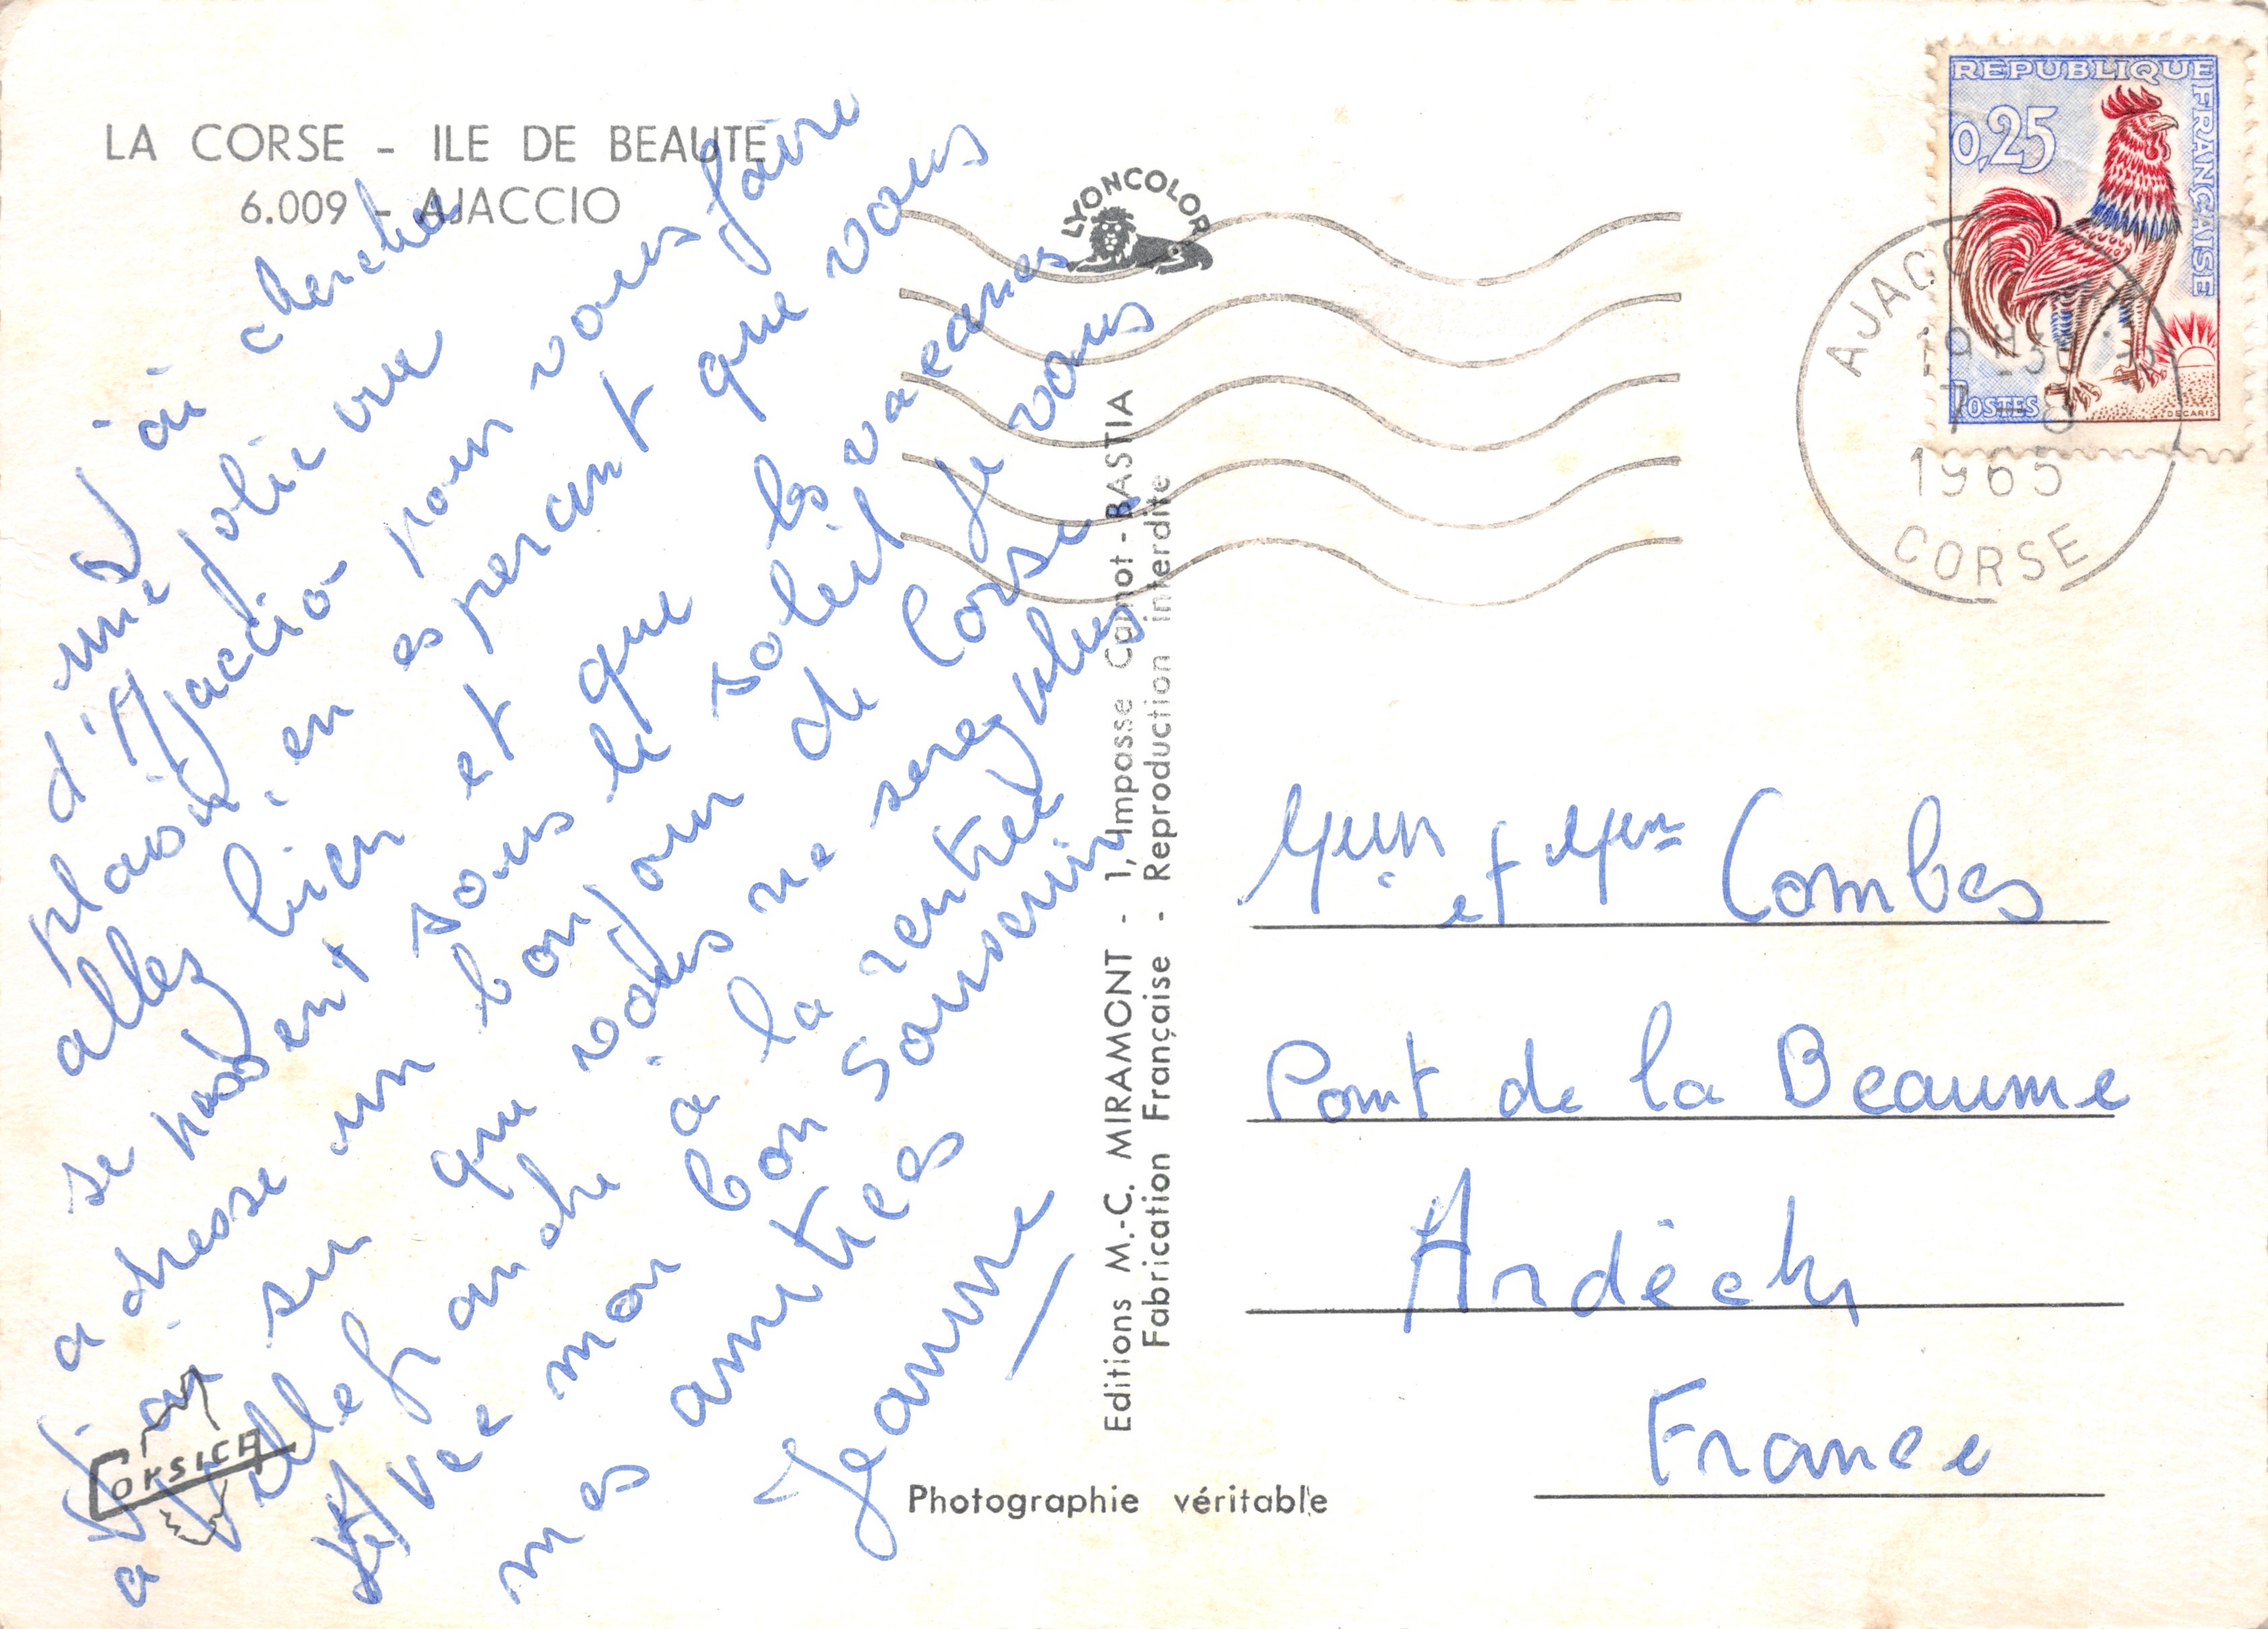 LA CORSE - ILE DE BEAUTE
6.009 - AJACCIO
J'ai cherché
une jolie vue
d'Ajaccio pour vous faire
plaisir, en esperant que vous
allez bien et que les vacances
se passent sous le soleil je vous
adresse un bonjour de Corse
J'ai su que vous ne serez plus
a Villefranche à la rentrée
avec mon bon souvenir
mes amitiés
Jeanne
CORSICA
LYONCOLOR
Editions M.-C. MIRAMONT - 1, Impasse Carnot - BASTIA
Fabrication Française - Reproduction interdite
Photographie véritable
REPUBLIQUE FRANÇAISE
0,25
POSTES
DECARIS
AJACCIO
19 H30
7 - 8
1965
CORSE
et Mme Combes
Pont de la Beaume
Ardèche
France